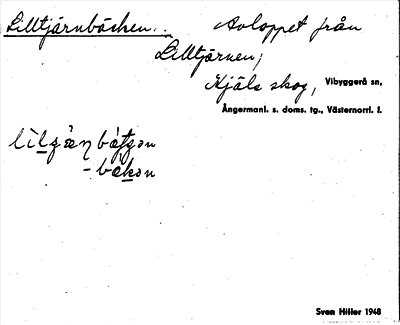 Lilltjärnbäcken. Avloppet från
Lilltjärnen;
Kjäls skog, Vibyggerå sn,
Ångermanl. s. doms. tg., Västernorrl. l.
Sven Hiller 1948